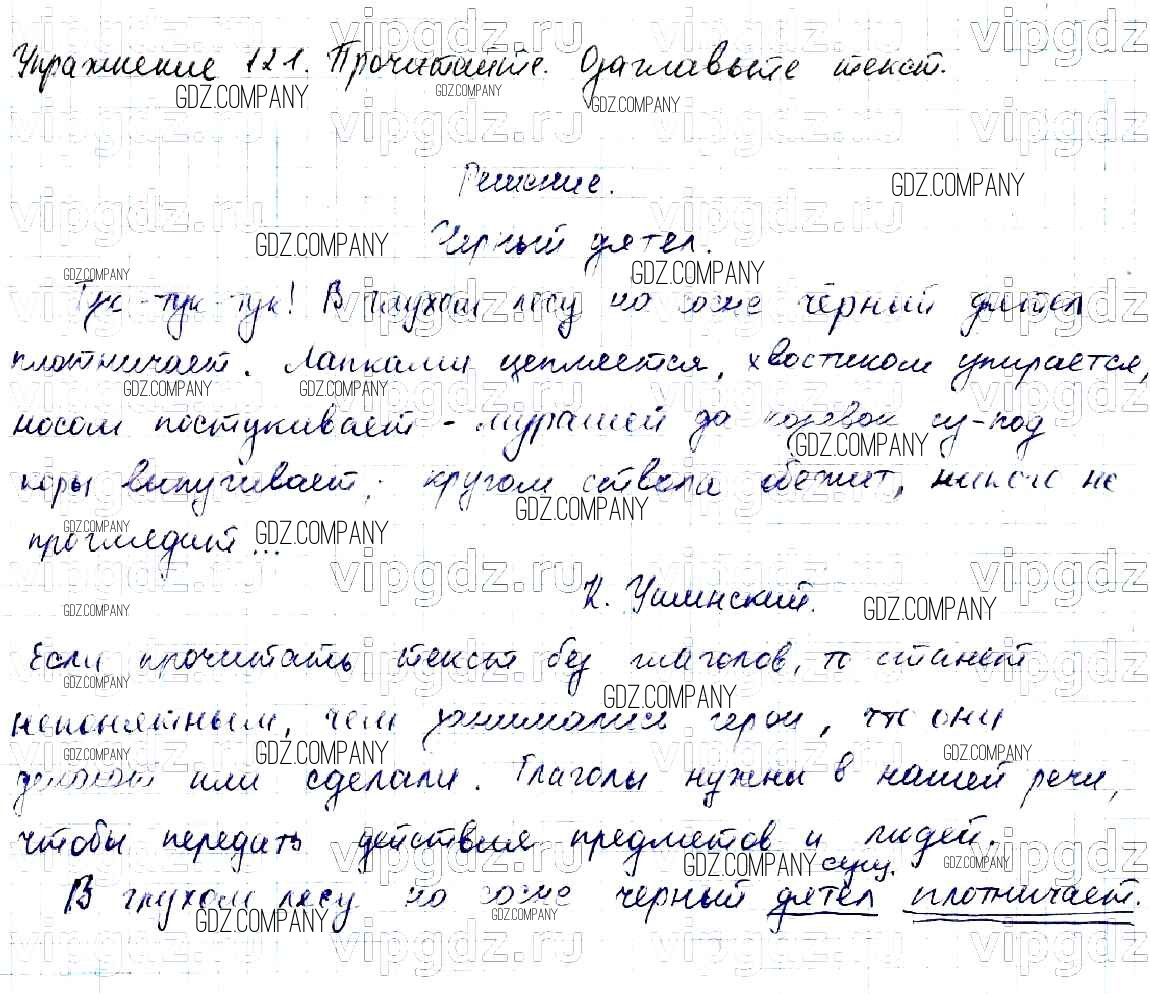 Упражнение 121. Прочитайте. Озаглавьте текст.
Решение.
Черный дятел.
Тук-тук-тук! В глухом лесу на сосне чёрный дятел
плотничает. Лапками цепляется, хвостиком упирается,
носом постукивает - мурашей да козявок из-под
коры выпугивает; кругом ствола обежит, никого не
проглядит...
К. Ушинский.
Если прочитать текст без глаголов, то станет
непонятным, чем занимались герои, что они
делают или сделали. Глаголы нужны в нашей речи,
чтобы передать действия предметов и людей.
сущ.
В глухом лесу на сосне черный дятел плотничает.
vipgdz.ru
GDZ.COMPANY